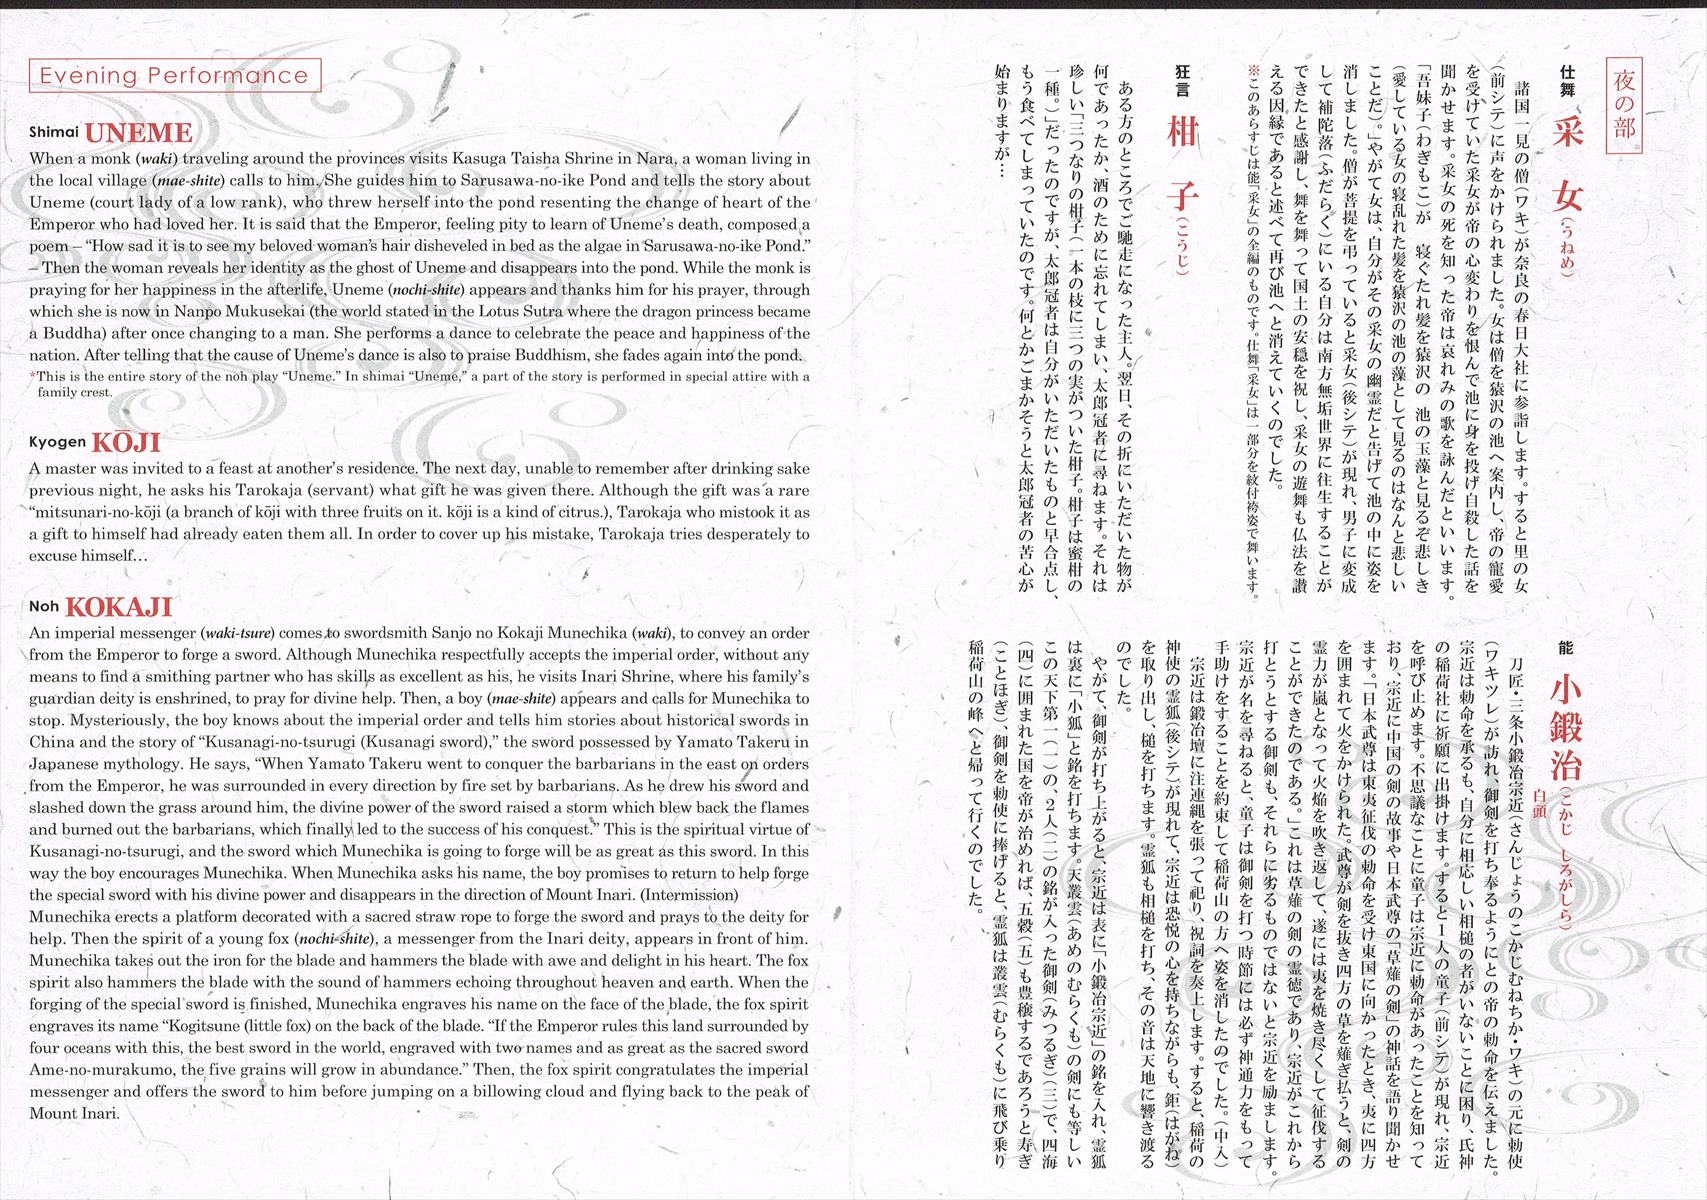 Evening Performance
Shimai UNEME
When a monk (waki) traveling around the provinces visits Kasuga Taisha Shrine in Nara, a woman living in
the local village (mae-shite) calls to him. She guides him to Sarusawa-no-ike Pond and tells the story about
Uneme (court lady of a low rank), who threw herself into the pond resenting the change of heart of the
Emperor who had loved her. It is said that the Emperor, feeling pity to learn of Uneme's death, composed a
poem – “How sad it is to see my beloved woman's hair disheveled in bed as the algae in Sarusawa-no-ike Pond.”
– Then the woman reveals her identity as the ghost of Uneme and disappears into the pond. While the monk is
praying for her happiness in the afterlife, Uneme (nochi-shite) appears and thanks him for his prayer, through
which she is now in Nanpo Mukusekai (the world stated in the Lotus Sutra where the dragon princess became
a Buddha) after once changing to a man. She performs a dance to celebrate the peace and happiness of the
nation. After telling that the cause of Uneme's dance is also to praise Buddhism, she fades again into the pond.
*This is the entire story of the noh play “Uneme.” In shimai “Uneme,” a part of the story is performed in special attire with a
family crest.
Kyogen KŌJI
A master was invited to a feast at another's residence. The next day, unable to remember after drinking sake
previous night, he asks his Tarokaja (servant) what gift he was given there. Although the gift was a rare
“mitsunari-no-kōji (a branch of kōji with three fruits on it. kōji is a kind of citrus.), Tarokaja who mistook it as
a gift to himself had already eaten them all. In order to cover up his mistake, Tarokaja tries desperately to
excuse himself…
Noh KOKAJI
An imperial messenger (waki-tsure) comes to swordsmith Sanjo no Kokaji Munechika (waki), to convey an order
from the Emperor to forge a sword. Although Munechika respectfully accepts the imperial order, without any
means to find a smithing partner who has skills as excellent as his, he visits Inari Shrine, where his family's
guardian deity is enshrined, to pray for divine help. Then, a boy (mae-shite) appears and calls for Munechika to
stop. Mysteriously, the boy knows about the imperial order and tells him stories about historical swords in
China and the story of “Kusanagi-no-tsurugi (Kusanagi sword),” the sword possessed by Yamato Takeru in
Japanese mythology. He says, “When Yamato Takeru went to conquer the barbarians in the east on orders
from the Emperor, he was surrounded in every direction by fire set by barbarians. As he drew his sword and
slashed down the grass around him, the divine power of the sword raised a storm which blew back the flames
and burned out the barbarians, which finally led to the success of his conquest.” This is the spiritual virtue of
Kusanagi-no-tsurugi, and the sword which Munechika is going to forge will be as great as this sword. In this
way the boy encourages Munechika. When Munechika asks his name, the boy promises to return to help forge
the special sword with his divine power and disappears in the direction of Mount Inari. (Intermission)
Munechika erects a platform decorated with a sacred straw rope to forge the sword and prays to the deity for
help. Then the spirit of a young fox (nochi-shite), a messenger from the Inari deity, appears in front of him.
Munechika takes out the iron for the blade and hammers the blade with awe and delight in his heart. The fox
spirit also hammers the blade with the sound of hammers echoing throughout heaven and earth. When the
forging of the special sword is finished, Munechika engraves his name on the face of the blade, the fox spirit
engraves its name “Kogitsune (little fox) on the back of the blade. “If the Emperor rules this land surrounded by
four oceans with this, the best sword in the world, engraved with two names and as great as the sacred sword
Ame-no-murakumo, the five grains will grow in abundance.” Then, the fox spirit congratulates the imperial
messenger and offers the sword to him before jumping on a billowing cloud and flying back to the peak of
Mount Inari.
夜の部
仕舞 采女(うねめ)
諸国一見の僧(ワキ)が奈良の春日大社に参詣します。すると里の女
(前シテ)に声をかけられました。女は僧を猿沢の池へ案内し、帝の寵愛
を受けていた采女が帝の心変わりを恨んで池に身を投げ自殺した話を
聞かせます。采女の死を知った帝は哀れみの歌を詠んだといいます。
「吾妹子(わぎもこ)が 寝ぐたれ髪を猿沢の 池の玉藻と見るぞ悲しき
(愛している女の寝乱れた髪を猿沢の池の藻として見るのはなんと悲しい
ことだ)。」やがて女は、自分がその采女の幽霊だと告げて池の中に姿を
消しました。僧が菩提を弔っていると采女(後シテ)が現れ、男子に変成
して補陀落(ふだらく)にいる自分は南方無垢世界に往生することが
できたと感謝し、舞を舞って国土の安穏を祝し、采女の遊舞も仏法を讃
える因縁であると述べて再び池へと消えていくのでした。
※このあらすじは能「采女」の全編のものです。仕舞「采女」は一部分を紋付袴姿で舞います。
狂言 柑子(こうじ)
ある方のところでご馳走になった主人。翌日、その折にいただいた物が
何であったか、酒のために忘れてしまい、太郎冠者に尋ねます。それは
珍しい「三つなりの柑子(一本の枝に三つの実がついた柑子。柑子は蜜柑の
一種。)」だったのですが、太郎冠者は自分がいただいたものと早合点し、
もう食べてしまっていたのです。何とかごまかそうと太郎冠者の苦心が
始まりますが…
能 小鍛治(こかじ しろがしら)
白頭
刀匠・三条小鍛冶宗近(さんじょうのこかじむねちか・ワキ)の元に勅使
(ワキツレ)が訪れ、御剣を打ち奉るようにとの帝の勅命を伝えました。
宗近は勅命を承るも、自分に相応しい相槌の者がいないことに困り、氏神
の稲荷社に祈願に出掛けます。すると1人の童子(前シテ)が現れ、宗近
を呼び止めます。不思議なことに童子は宗近に勅命があったことを知って
おり、宗近に中国の剣の故事や日本武尊の「草薙の剣」の神話を語り聞かせ
ます。「日本武尊は東夷征伐の勅命を受け東国に向かったとき、夷に四方
を囲まれて火をかけられた。武尊が剣を抜き四方の草を薙ぎ払うと、剣の
霊力が嵐となって火焔を吹き返して、遂には夷を焼き尽くして征伐する
ことができたのである。」これは草薙の剣の霊徳であり、宗近がこれから
打とうとする御剣も、それらに劣るものではないと宗近を励まします。
宗近が名を尋ねると、童子は御剣を打つ時節には必ず神通力をもって
手助けをすることを約束して稲荷山の方へ姿を消したのでした。(中入)
宗近は鍛冶壇に注連縄を張って祀り、祝詞を奏上します。すると、稲荷の
神使の霊狐(後シテ)が現れて、宗近は恐悦の心を持ちながらも、鉅(はがね)
を取り出し、槌を打ちます。霊狐も相槌を打ち、その音は天地に響き渡る
のでした。
やがて、御剣が打ち上がると、宗近は表に「小鍛冶宗近」の銘を入れ、霊狐
は裏に「小狐」と銘を打ちます。天叢雲(あめのむらくも)の剣にも等しい
この天下第一(一)の、2人(二)の銘が入った御剣(みつるぎ)(三)で、四海
(四)に囲まれた国を帝が治めれば、五穀(五)も豊穣するであろうと寿ぎ
(ことほぎ)、御剣を勅使に捧げると、霊狐は叢雲(むらくも)に飛び乗り
稲荷山の峰へと帰って行くのでした。